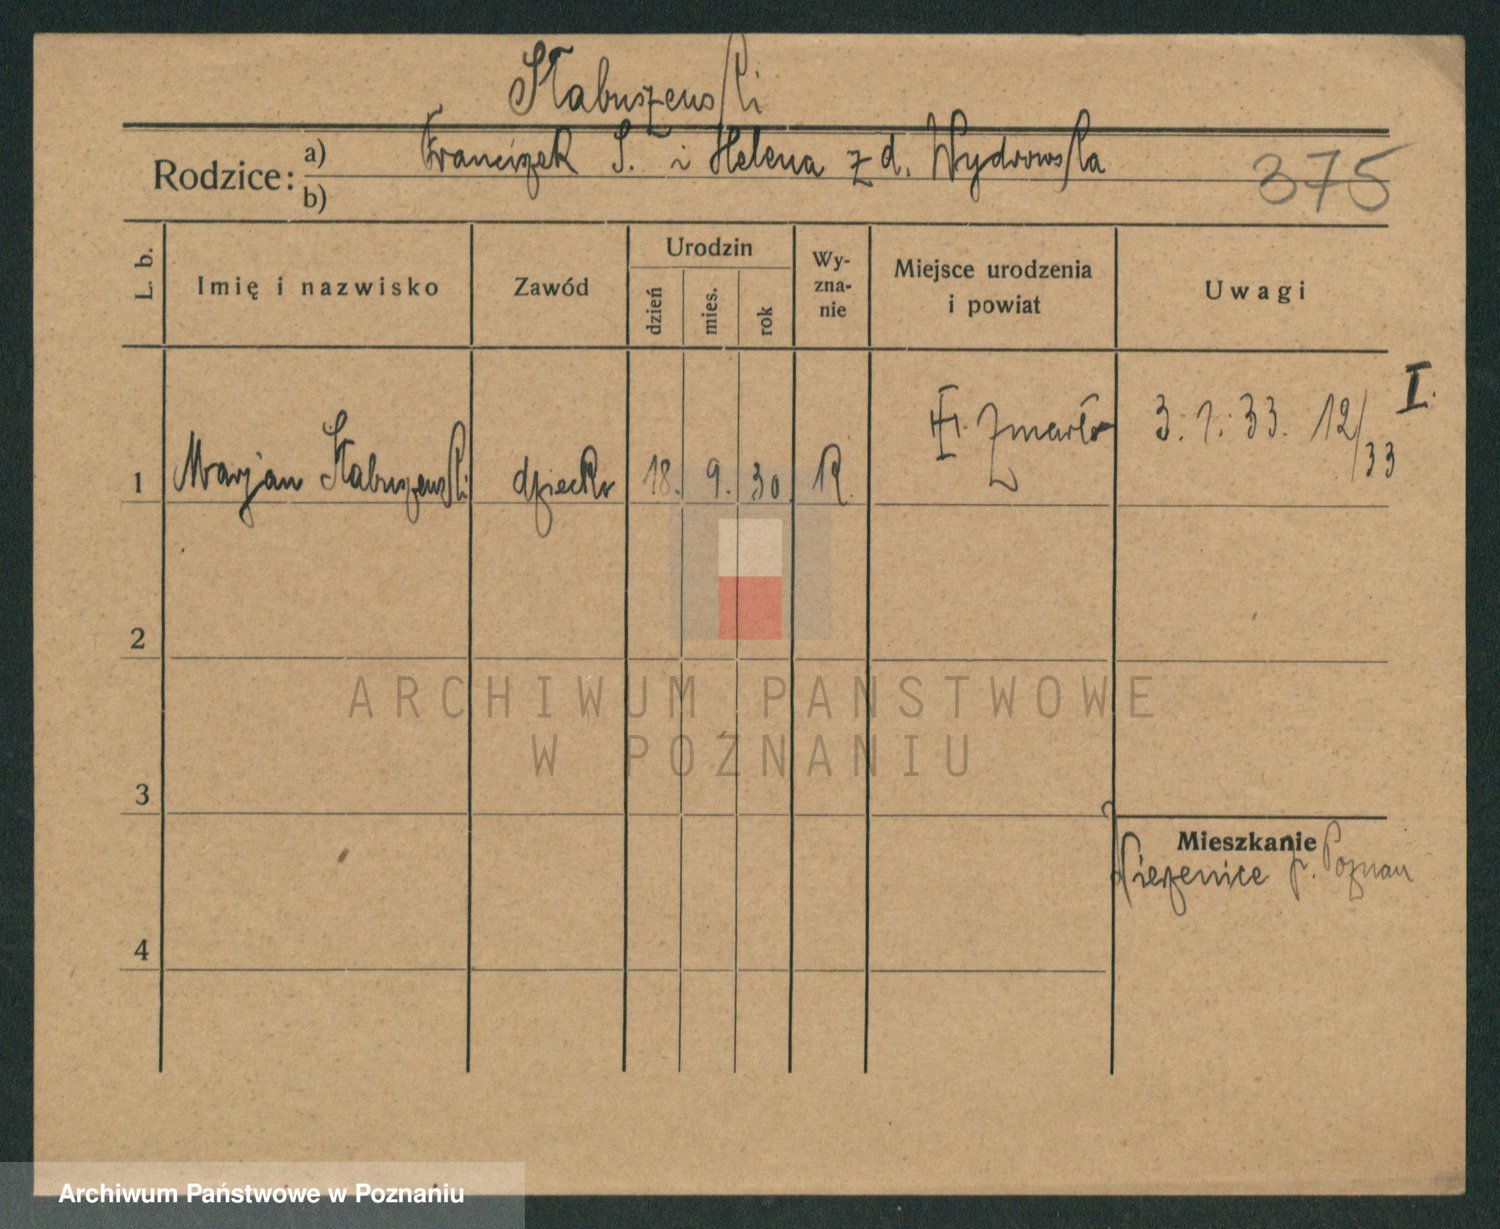 Słabuszewski
Rodzice: a) Franciszek S. i Helena z d. Wydrowska
b)
375
L. b.
Imię i nazwisko
Zawód
Urodzin
dzień
mies.
rok
Wy-
zna-
nie
Miejsce urodzenia
i powiat
Uwagi
I.
1 Marjan Słabuszewski dziecko 18. 9. 30. R. Zmarło 3. 1. 33. 12/33
2
3
4
Mieszkanie
p. Poznan
ARCHIWUM PAŃSTWOWE
W POZNANIU
Archiwum Państwowe w Poznaniu